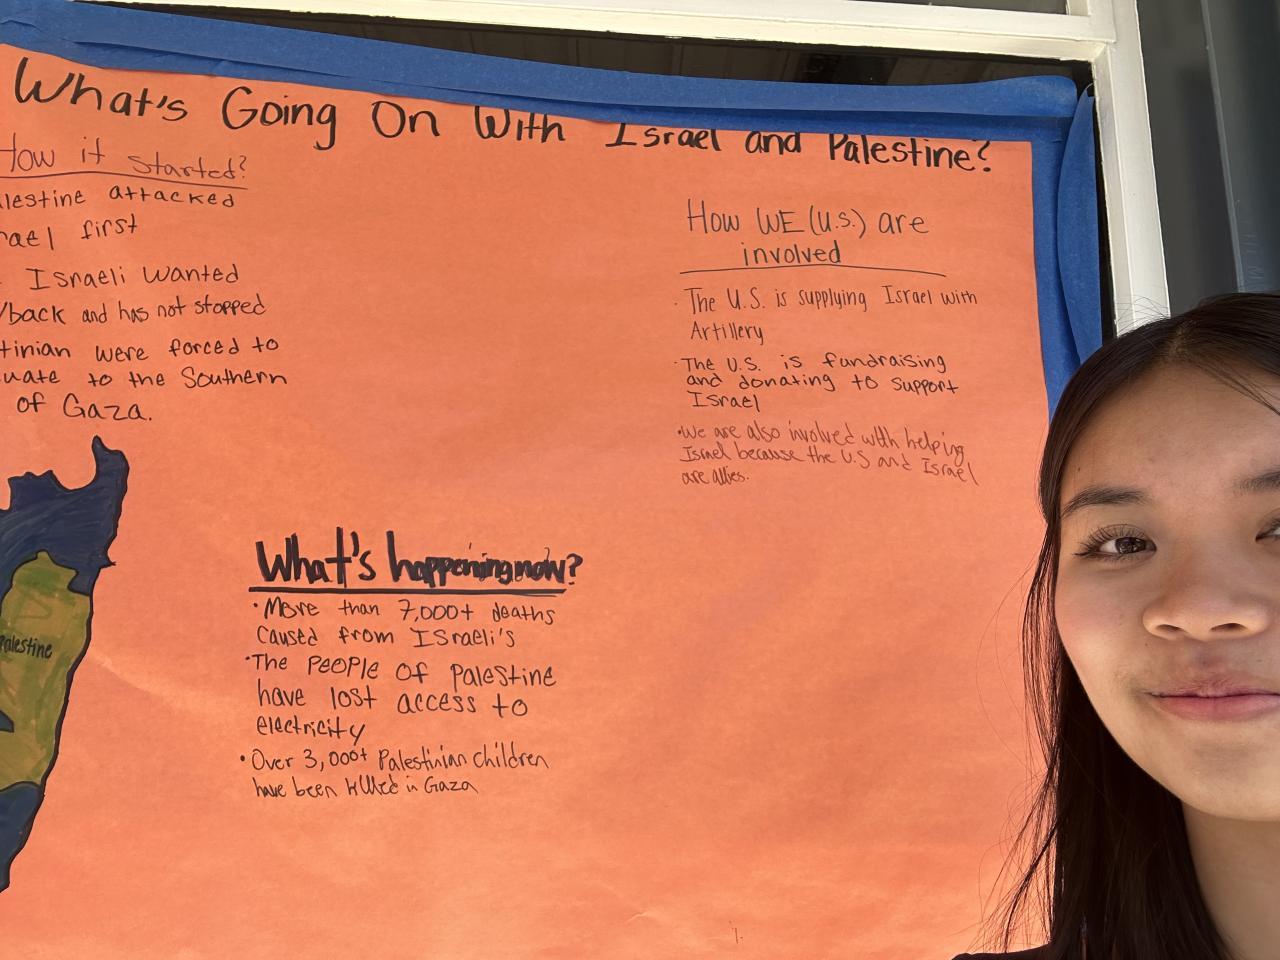 What's Going On With Israel and Palestine?
How it started?
alestine attacked
rael first
Israeli wanted
/back and has not stopped
tinian were forced to
uate to the Southern
of Gaza.
Palestine
How WE (U.S.) are
involved
· The U.S. is supplying Israel with
Artillery
· The U.S. is fundraising
and donating to support
Israel
· We are also involved with helping
Israel because the U.S and Israel
are allies.
What's happening now?
· More than 7,000+ deaths
caused from Israeli's
· The PEOPLE of Palestine
have lost access to
electricity
· Over 3,000+ Palestinian children
have been killed in Gaza